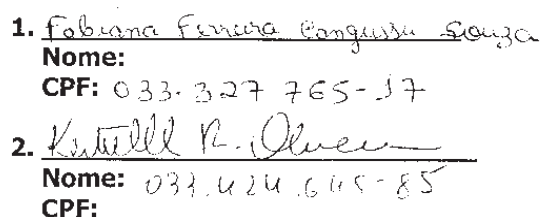 1. Fabiana Ferreira Cangussu Souza
Nome:
CPF: 033.327 765-17
2. R. Oliveira
Nome: 033.424.645-85
CPF: